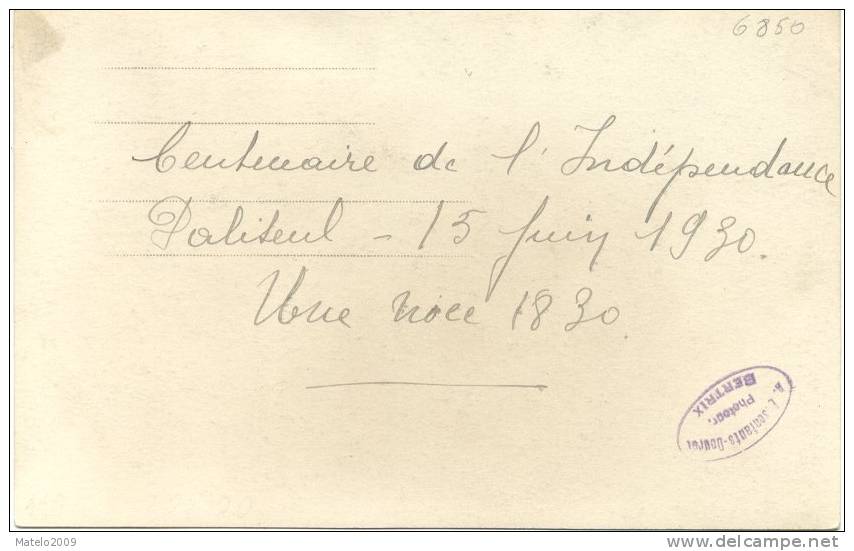 6850
Centenaire de l'Indépendance
Paliseul - 15 Juin 1930.
Une noce 1830
Photogr.
BERTRIX
Matelo2009
www.delcampe.net